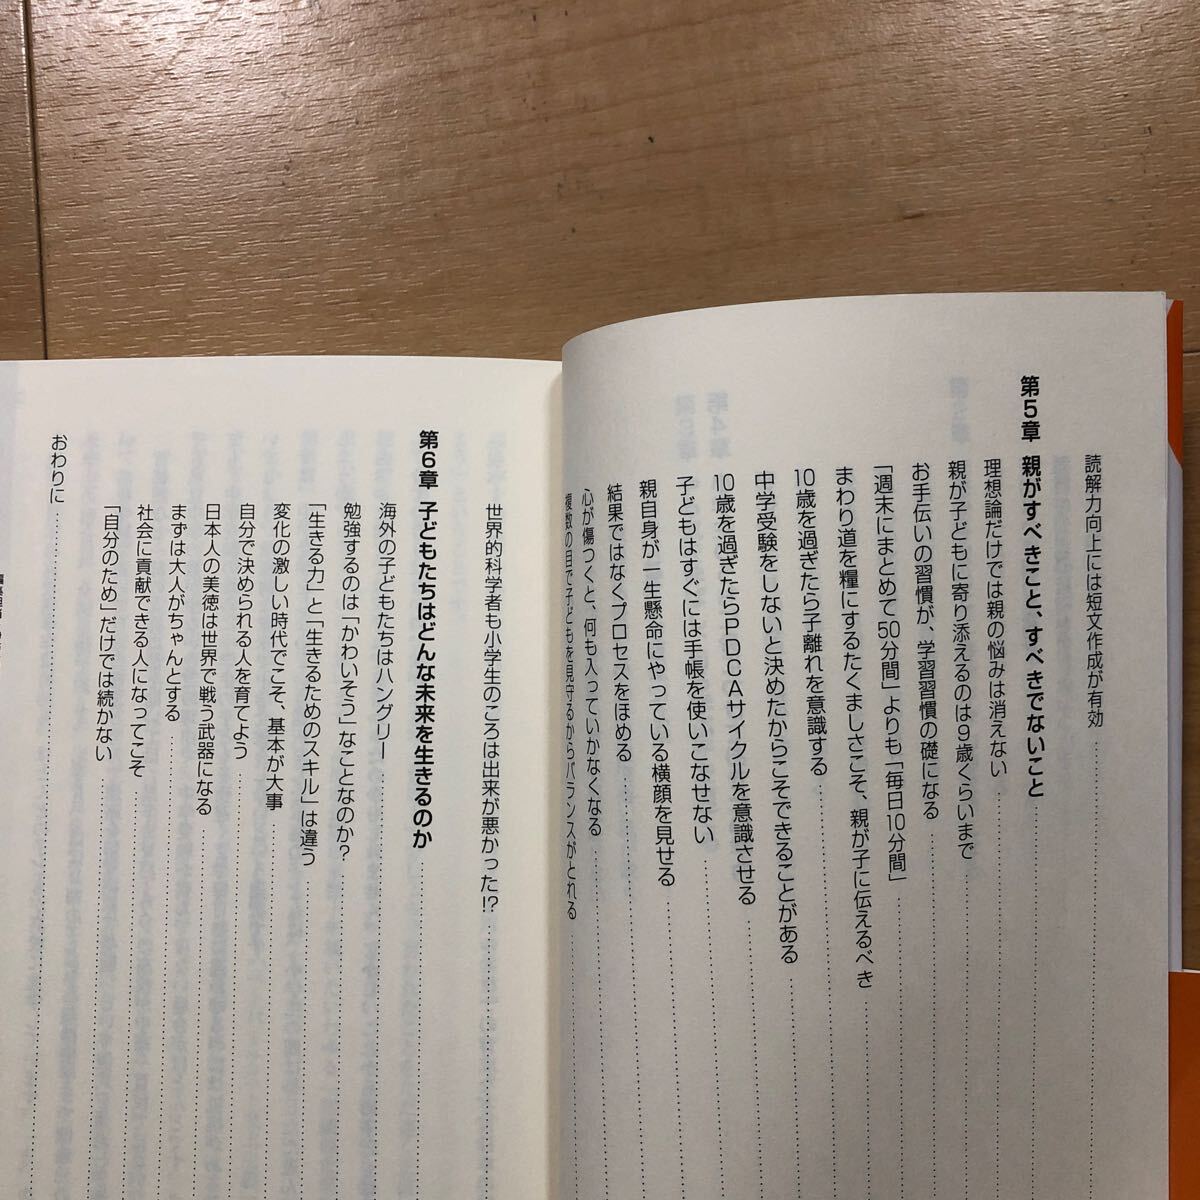 読解力向上には短文作成が有効
第5章 親がすべきこと、すべきでないこと
理想論だけでは親の悩みは消えない
親が子どもに寄り添えるのは9歳くらいまで
お手伝いの習慣が、学習習慣の礎になる
「週末にまとめて50分間」よりも「毎日10分間」
まわり道を糧にするたくましさこそ、親が子に伝えるべき
10歳を過ぎたら子離れを意識する
中学受験をしないと決めたからこそできることがある
10歳を過ぎたらPDCAサイクルを意識させる
子どもはすぐには手帳を使いこなせない
親自身が一生懸命にやっている横顔を見せる
結果ではなくプロセスをほめる
心が傷つくと、何も入っていかなくなる
複数の目で子どもを見守るからバランスがとれる
世界的科学者も小学生のころは出来が悪かった!?
第6章 子どもたちはどんな未来を生きるのか
海外の子どもたちはハングリー
勉強するのは「かわいそう」なことなのか?
「生きる力」と「生きるためのスキル」は違う
変化の激しい時代でこそ、基本が大事
自分で決められる人を育てよう
日本人の美徳は世界で戦う武器になる
まずは大人がちゃんとする
社会に貢献できる人になってこそ
「自分のため」だけでは続かない
おわりに